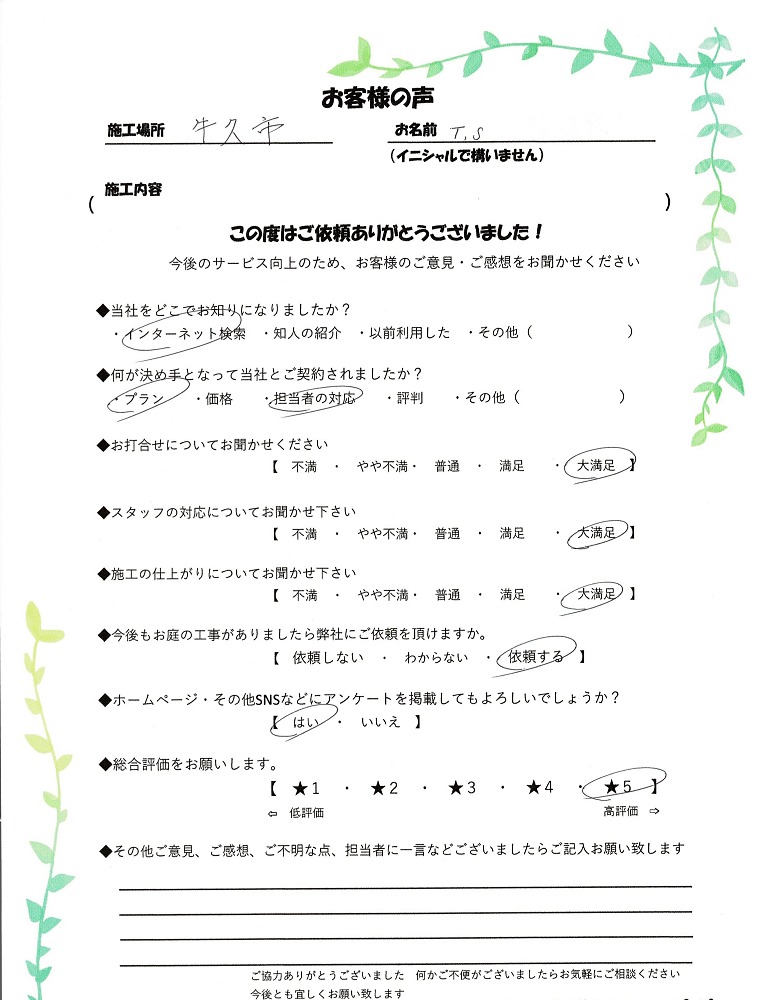 お客様の声
施工場所 牛久市 お名前 T.S
(イニシャルで構いません)
施工内容
( )
この度はご依頼ありがとうございました！
今後のサービス向上のため、お客様のご意見・ご感想をお聞かせください
◆当社をどこでお知りになりましたか？
・インターネット検索 ・知人の紹介 ・以前利用した ・その他（ ）
◆何が決め手となって当社とご契約されましたか？
・プラン ・価格 ・担当者の対応 ・評判 ・その他（ ）
◆お打合せについてお聞かせください
【 不満 ・ やや不満・ 普通 ・ 満足 ・ 大満足 】
◆スタッフの対応についてお聞かせ下さい
【 不満 ・ やや不満・ 普通 ・ 満足 ・ 大満足 】
◆施工の仕上がりについてお聞かせ下さい
【 不満 ・ やや不満・ 普通 ・ 満足 ・ 大満足 】
◆今後もお庭の工事がありましたら弊社にご依頼を頂けますか。
【 依頼しない ・ わからない ・ 依頼する 】
◆ホームページ・その他SNSなどにアンケートを掲載してもよろしいでしょうか？
【 はい ・ いいえ 】
◆総合評価をお願いします。
【 ★1 ・ ★2 ・ ★3 ・ ★4 ・ ★5 】
⇦ 低評価 高評価 ⇨
◆その他ご意見、ご感想、ご不明な点、担当者に一言などございましたらご記入お願い致します
ご協力ありがとうございました 何かご不便がございましたらお気軽にご相談ください
今後とも宜しくお願い致します